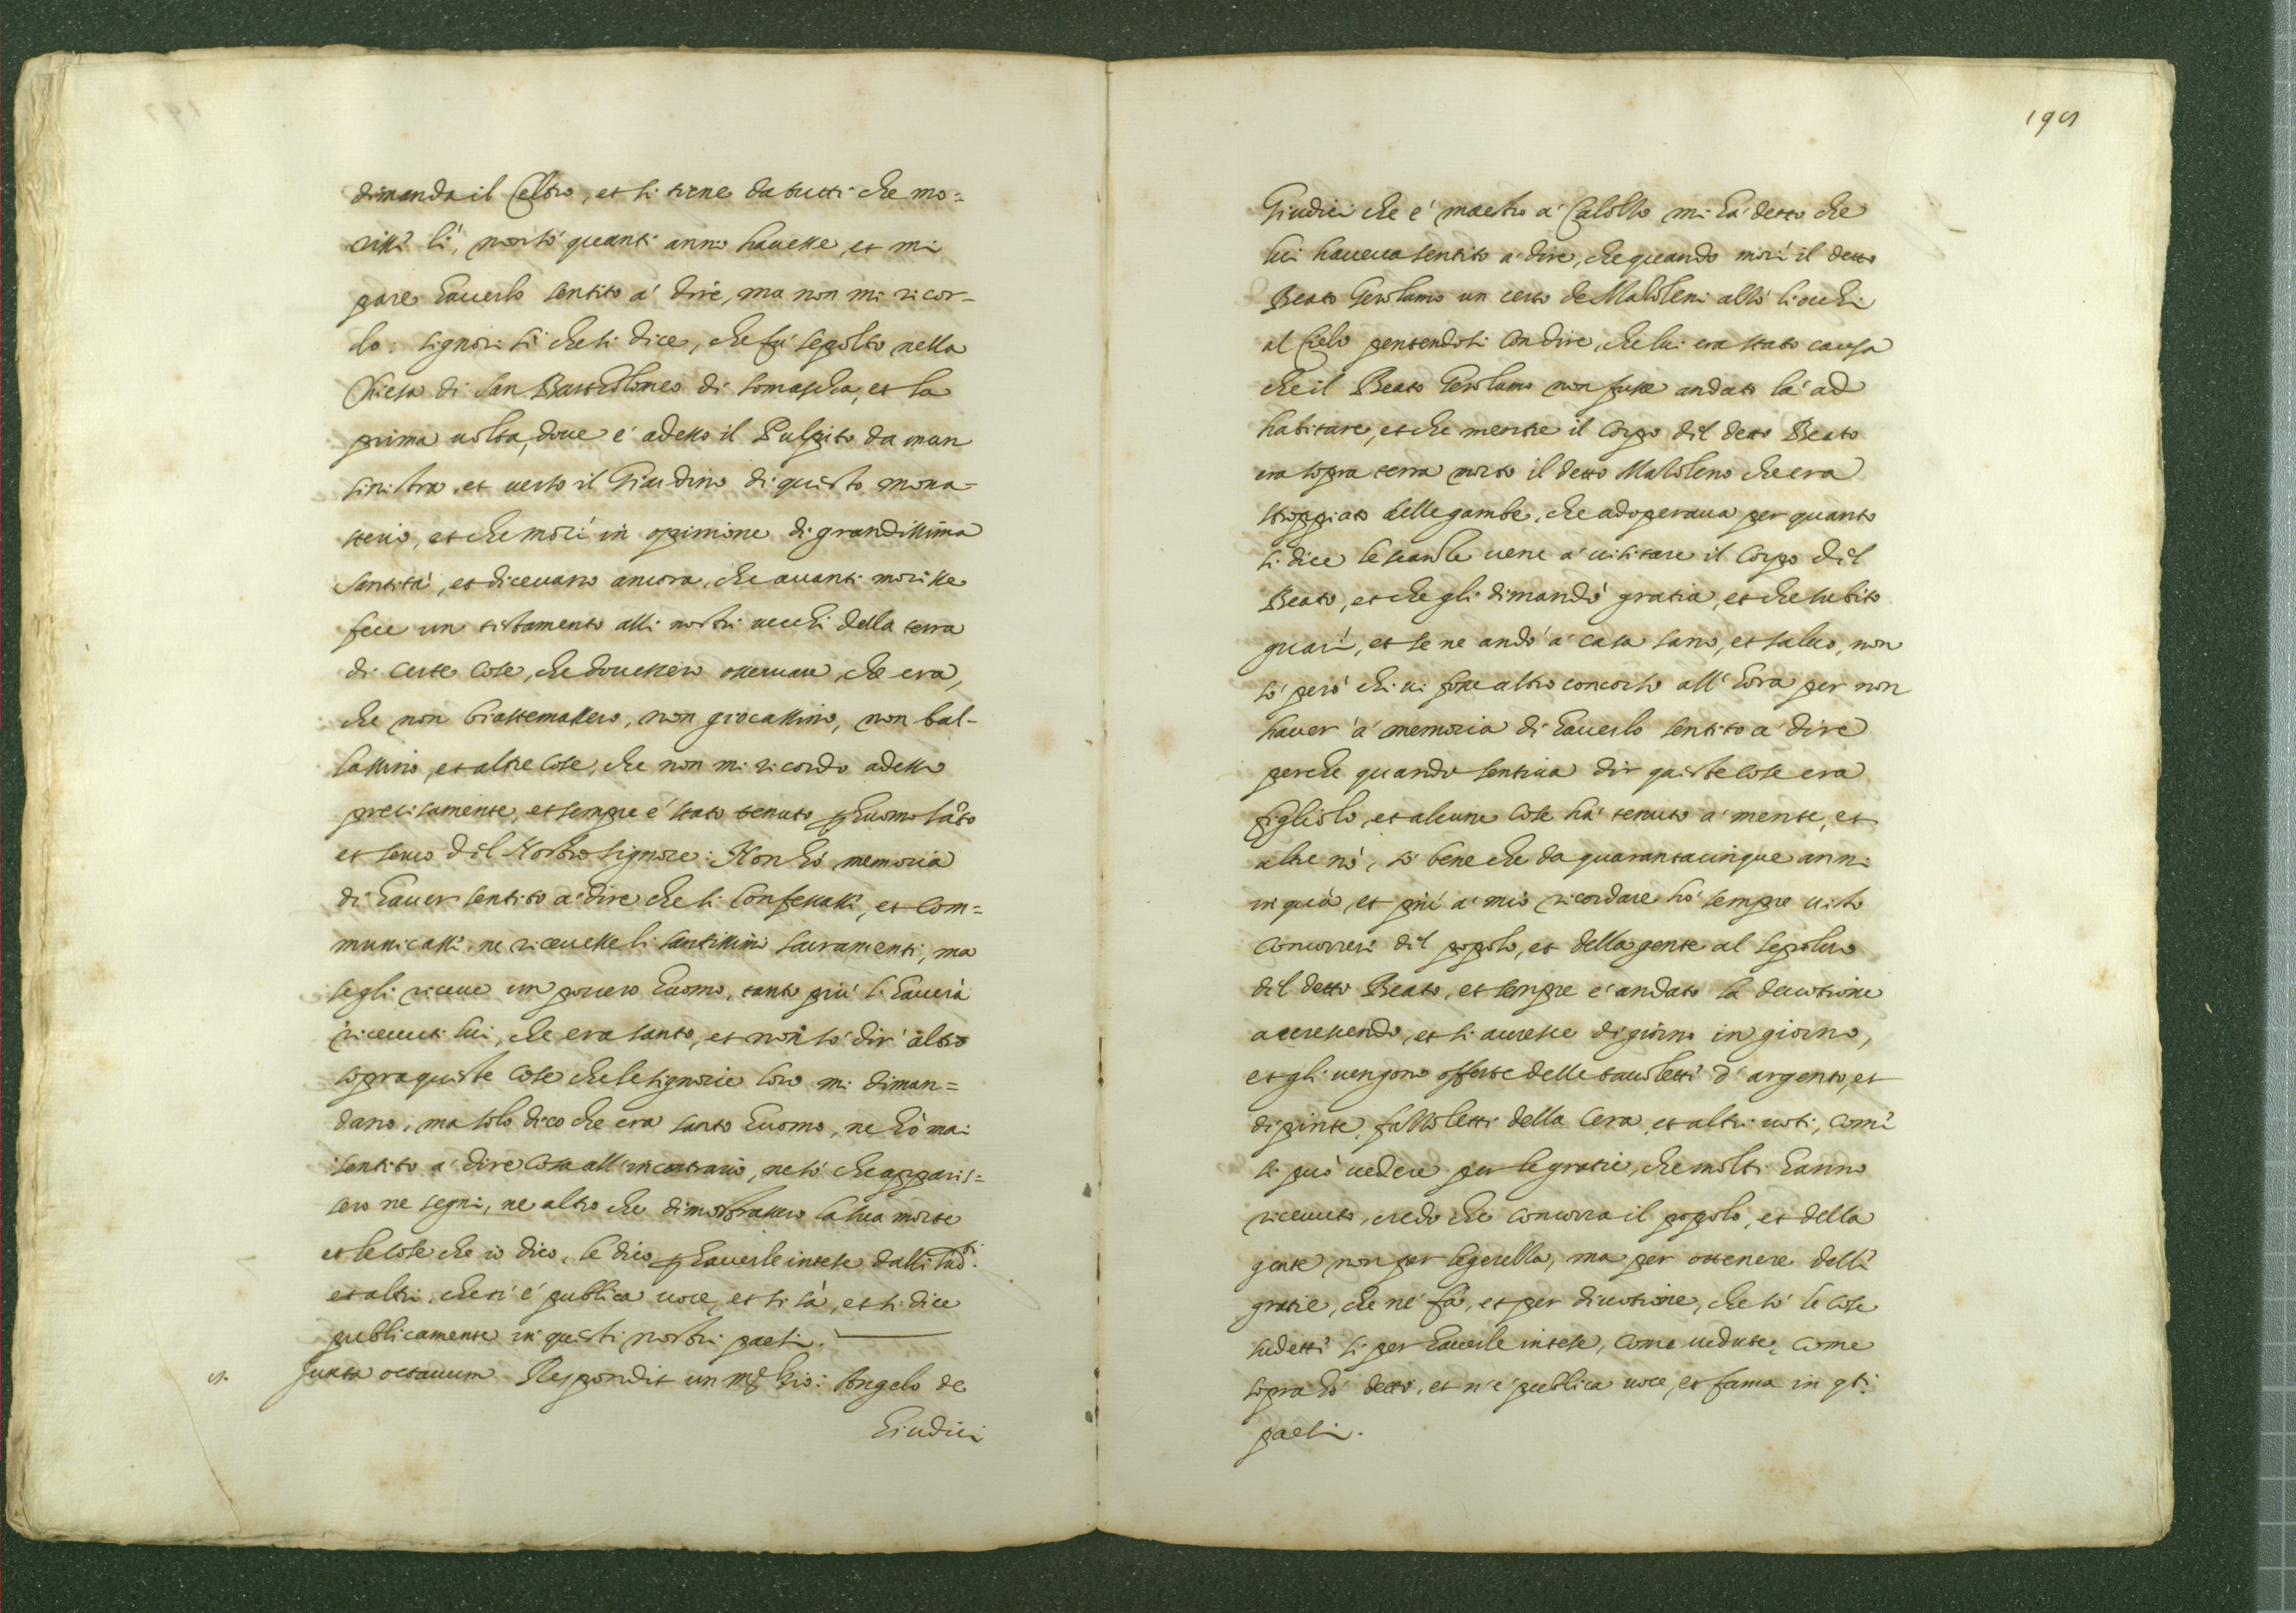 dimanda il Celtro, et si tiene da tutti che mo=
rissi lì, non sò quanti anni havesse, et mi
pare haverlo sentito à dire, ma non mi ricor-
do: signori sì che si dice, che fù sepolto nella
Chiesa di San Bartholomeo di Somascha, et la
prima volta, dove è adesso il Pulpito da man
sinistra, et verso il Giardino di questo mona-
sterio, et che morì in opinione di grandissima
Santità, et dicevano ancora, che avanti morisse
fece un testamento alli nostri vecchi della terra
di certe cose, che dovessero osservare, che era,
che non biastemassero, non giocassino, non bal-
lassino, et altre cose, che non mi ricordo adesso
precisamente, et sempre è stato tenuto p huomo sãto
et servo dil Nostro Signore: Non hò memoria
di haver sentito à dire che si confessassi, et com=
municassi, ne ricevesse li santissimi sacramenti, ma
se gli riceve un povero huomo, tanto più li haverà
ricevuti lui, che era santo, et non sò dir' altro
sopra queste cose che le signorie loro mi diman=
dano, ma solo dico che era santo huomo, ne hò mai
sentito à dire cosa all'incontrario, ne sò che apparis=
sero ne segni, ne altro che dimostrassero la sua morte
et le cose che io dico, le dico p haverle intese dalli sud.ti
et altri, che ci è publica voce, et si sà, et si dice
publicamente in questi nostri paesi.
Juxta octavum Respondit un m.r Gio: Angelo de
Giudici
195
Giudici che è maestro à Calolzo mi hà detto che
lui haveva sentito à dire, che quando morì il detto
Beato Gerolamo un certo de Mazoleni alzò li occhi
al Cielo pentendosi con dire, che lui era stato causa
che il Beato Gerolamo non fusse andato là ad
habitare, et che mentre il corpo dil detto Beato
era sopra terra morto il detto Mazoleno che era
stroppiato delle gambe, che adoperava per quanto
si dice le scanzle vene à visitare il corpo dil
Beato, et che gli dimandò gratia, et che subito
guarì, et se ne andò à casa sano, et salvo, non
sò però chi vi fosse altro concorso all' hora per non
haver à memoria di haverlo sentito à dire
perche quando sentiva dir queste cose era
figliolo, et alcune cose hà tenuto à mente, et
altre nò, sò bene che da quarantacinque anni
in quà, et più à mio ricordare hò sempre visto
concorrere dil popolo, et della gente al sepolcro
dil detto Beato, et sempre è andato la devotione
accrescendo, et si accresce di giorno in giorno,
et gli vengono offerte delle tavoletti d' argento, et
dipinte, fazzoletti della cera, et altri voti, comi
si può vedere per le gratie, che molti hanno
ricevuto, credo che concorra il popolo, et della
gente non per legerezza, ma per ottenere delli
gratie, che ne fà, et per divotione, che sò le cose
sudetti si per haverle intese, come vedute, come
sopra hò detto, et n'è publica voce, et fama in q.ti
paesi.